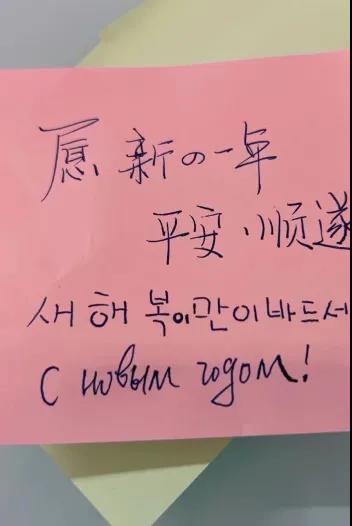 愿 新の一年
平安、顺遂
새 해 복이만이바드세
С новым годом!